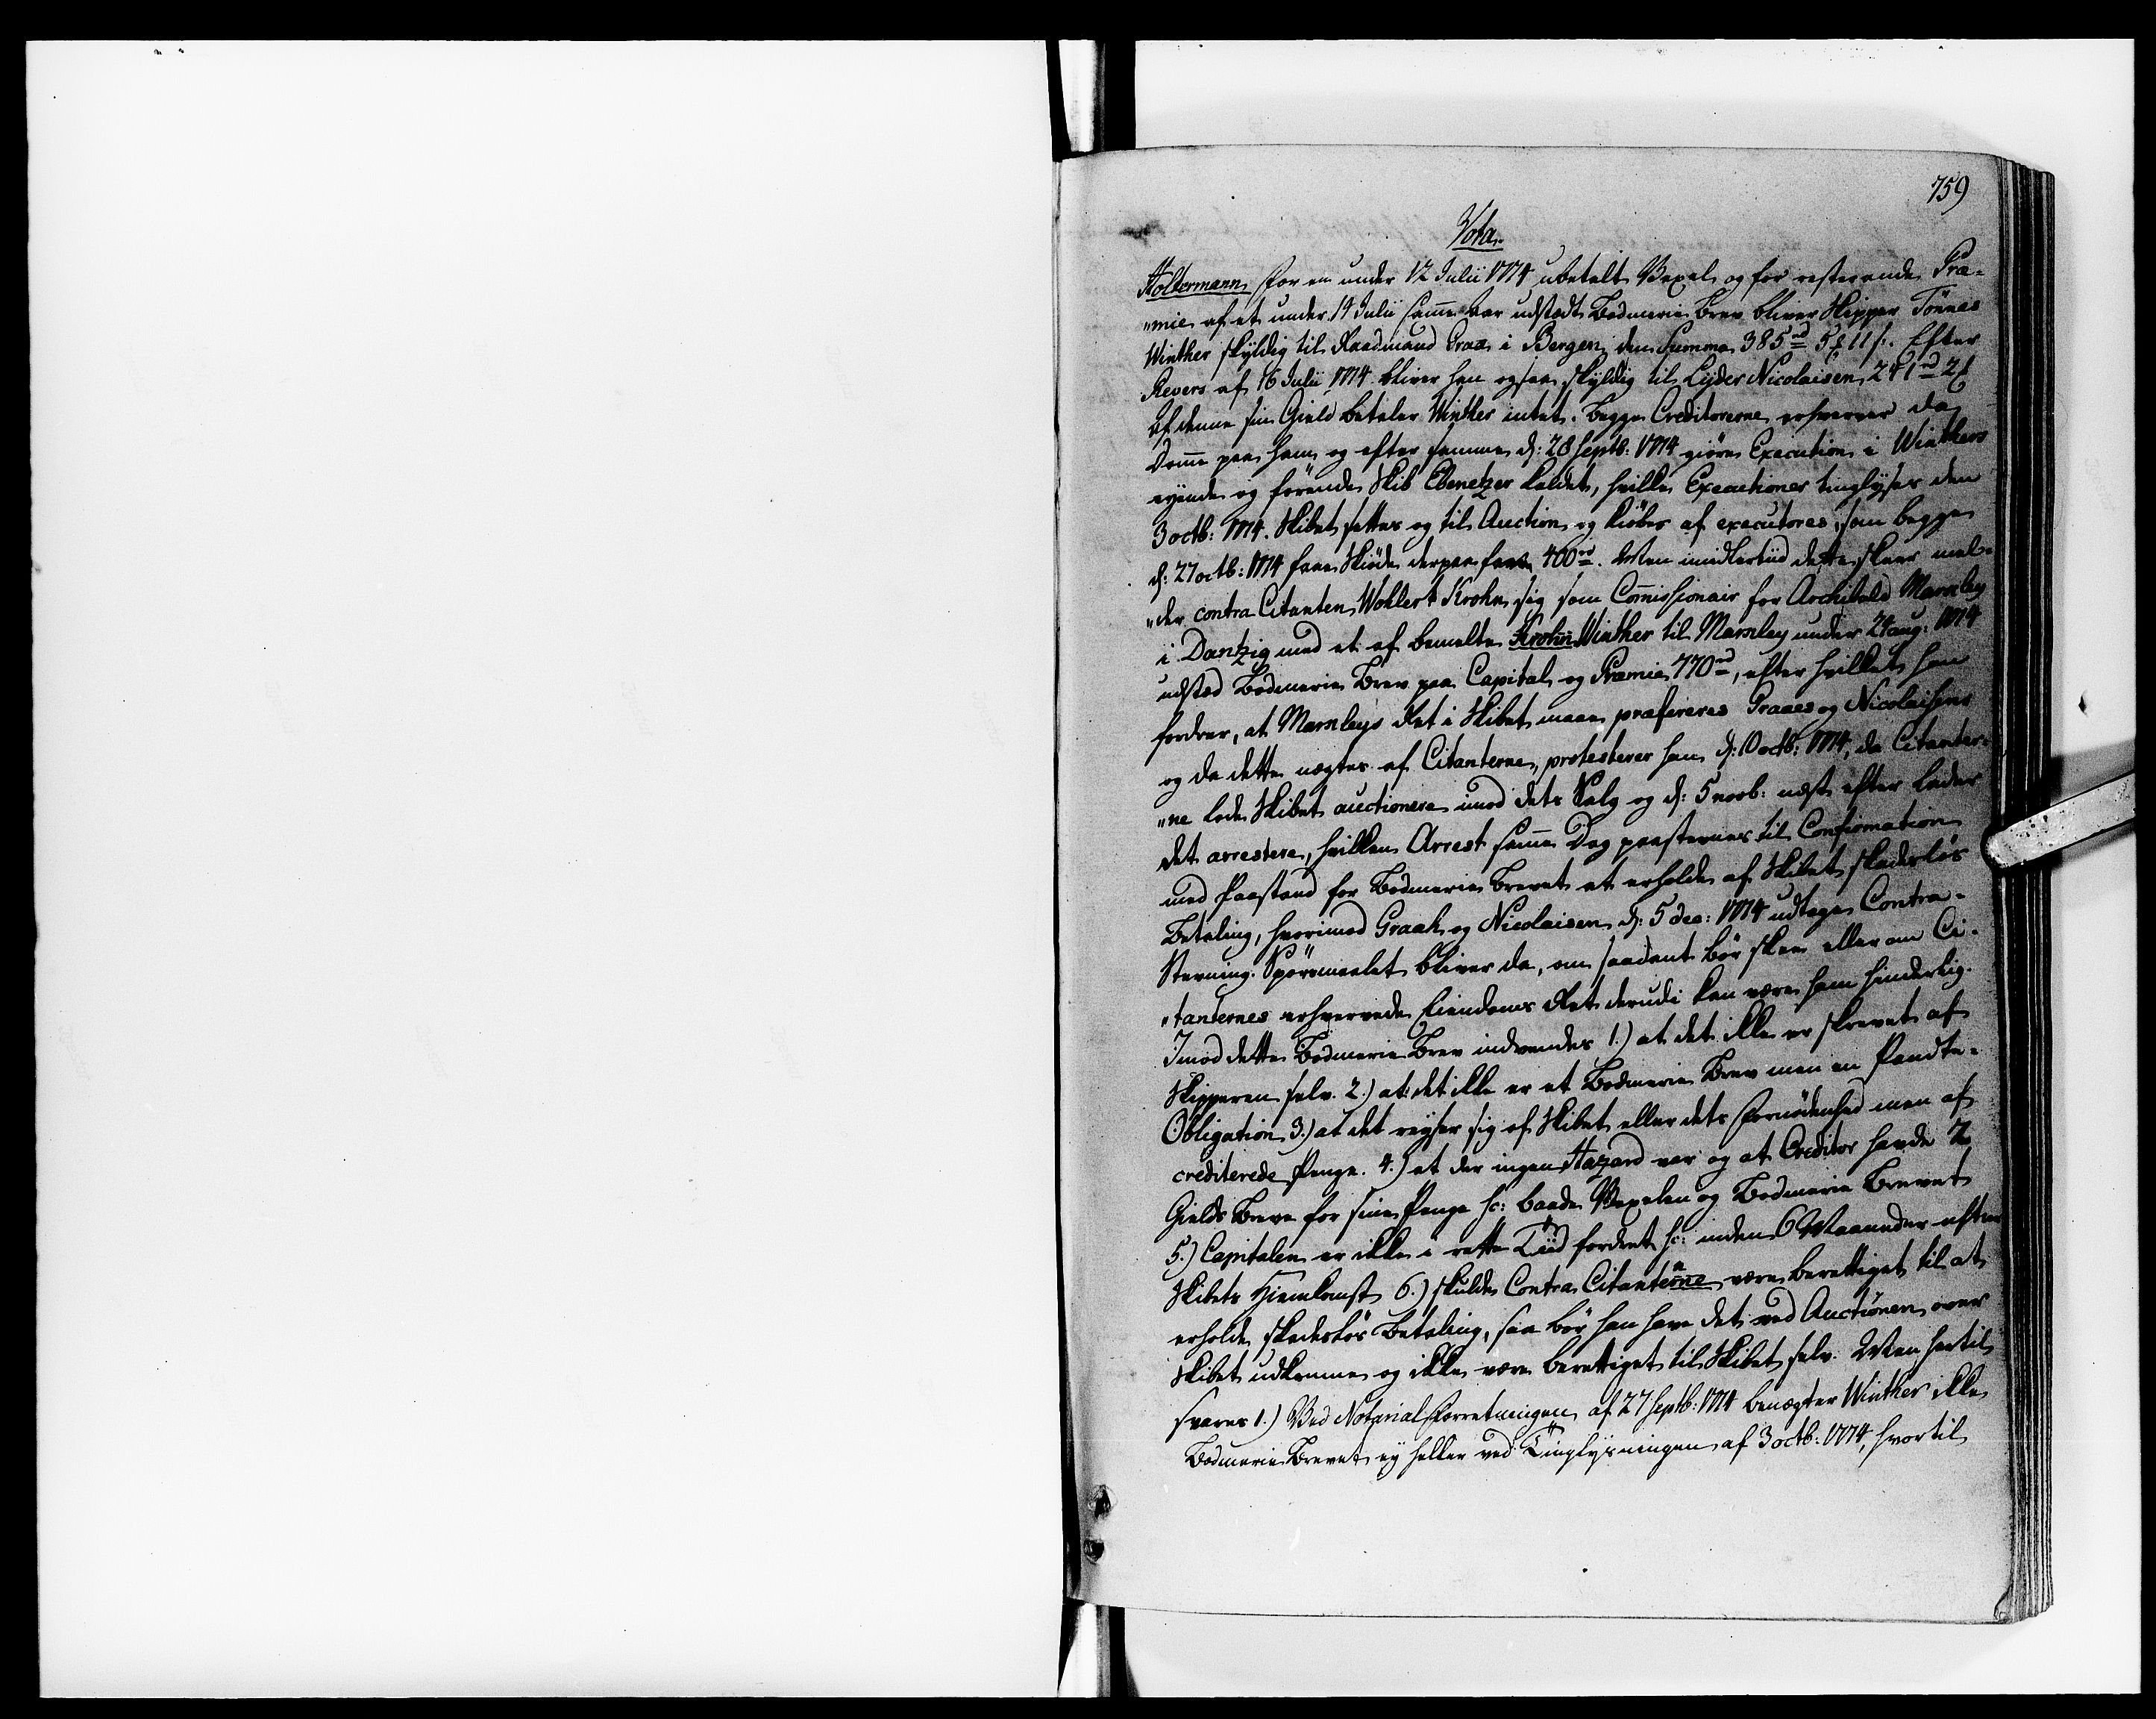 759
Vota.
Holtermann. For en under 12 Julii 1774 ubetalt Vexel og for resterende Præ-
„mie af et under 14 Julii samme Aar udstædt Bodmerie Brev bliver Skipper Tönnes
Winther skyldig til Raadmand Graa i Bergen den Summa 385rd 5 ß 11 s. Efter
Revers af 16 Julii 1774 bliver han ogsaa skyldig til Lyder Nicolaisen 241rd 2
Af denne sin Gield betaler Winther intet. Begge Creditorerne erhverver da
Domme paa ham og efter samme d: 28 Septb: 1774 giöre Execution i Winthers
eyende og förende Skib Ebenetzer kaldet, hvilke Executioner tinglyses den
3 octb: 1774. Skibet settes og til Auction og kiöbes af executores, som begge
d: 27 octb: 1774 faae Skiöde derpaa for 400rd. Men imidlertiid dette skeer mel-
„der contra Citanten Wohlert Krohn sig som Commissionair for Archibald Marnley
i Dantzig med et af bemelte Krohn Winther til Marnley under 24 aug: 1774
udsted Bodmerie Brev paa Capital og Præmie 770rd, efter hvilket han
fordrer, at Marnleys Ret i Skibet maae præfereres Graaes og Nicolaisens
og da dette nægtes af Citanterne, protesterer han d: 10 octb: 1774, da Citanter-
„ne lode Skibet auctionere imod dets Salg og d: 5 novb: næst efter lader
det arrestere, hvilken Arrest samme Dag paastevnes til Confirmation
med Paastand for Bodmerie Brevet at erholde af Skibet skadeslös
Betaling, hvorimod Graah og Nicolaisen d: 5 dec: 1774 udtager Contra-
Stevning. Spörsmaalet bliver da, om saadant bör skee eller om Ci-
„tanternes erhvervede Eiendoms Ret derudi kan være ham hinderlig.
Imod dette Bodmerie Brev indvendes 1.) at det ikke er skrevet af
Skipperen selv. 2.) at det ikke er et Bodmerie Brev men en Pandte-
Obligation 3.) at det reyser sig ej af Skibet eller dets Fornödenhed men af
crediterede Penge. 4.) at der ingen Hazard var og at Creditor havde 2
Gields Breve for sine Penge sc: baade Vexelen og Bodmerie Brevet
5.) Capitalen er ikke i rette Tiid fordret sc: inden 6 Maaneder efter
Skibets Hiemkomst 6.) skulde Contra Citanterne være berettiget til at
erholde skadeslös Betaling, saa bör han have det ved Auctionen over
Skibet udkomne og ikke være berettiget til Skibet selv. Men hertil
svares 1.) Ved Notarial Forretningen af 27 Septb: 1774 benægter Winther ikke
Bodmerie Brevet ey heller ved Tinglysningen af 3 octb: 1774, hvortil